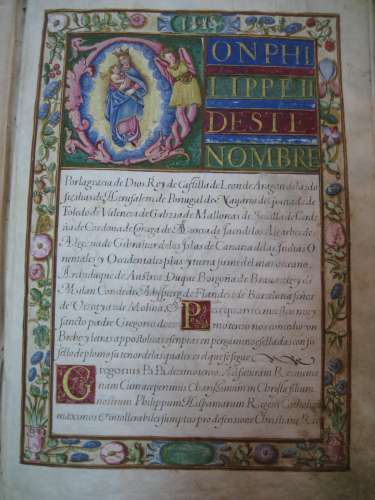 DON PHI
LIPPE II
DESTE
NOMBRE
Por la gracia de Dios, Rey de Castilla de Leon de Aragon de las dos
sicilias de Jherusalem de Portugal de Navarra de Granada de
Toledo de Valencia de Galizia de Mallorcas de Sevilla de Cerde
ña de Cordova de Corcega de Murcia de Jaen de los Algarbes de
Algezira de Gibraltar de las Islas de Canaria de las Indias O
rientales y Occidentales yslas y tierra firme del mar oceano
Archiduque de Austria Duque Borgoña de Bravante y de
Milan Conde de Abspurg de Flandes y de Barcelona señor
de Vizcaya y de Molina &
Por quanto nuestro muy
sancto padre Gregorio de
motu concedio un
Breve y letras appostolicas scriptas en pergamino y selladas con su
sello de plomo su tenor de las quales es el que se sigue
Gregorius PaPa Romano
nam Charissimum in Christo filium
nostrum Philippum Hispaniarum Regem Catholi
maximos et intollerabiles sumptus pro defensione Christiane